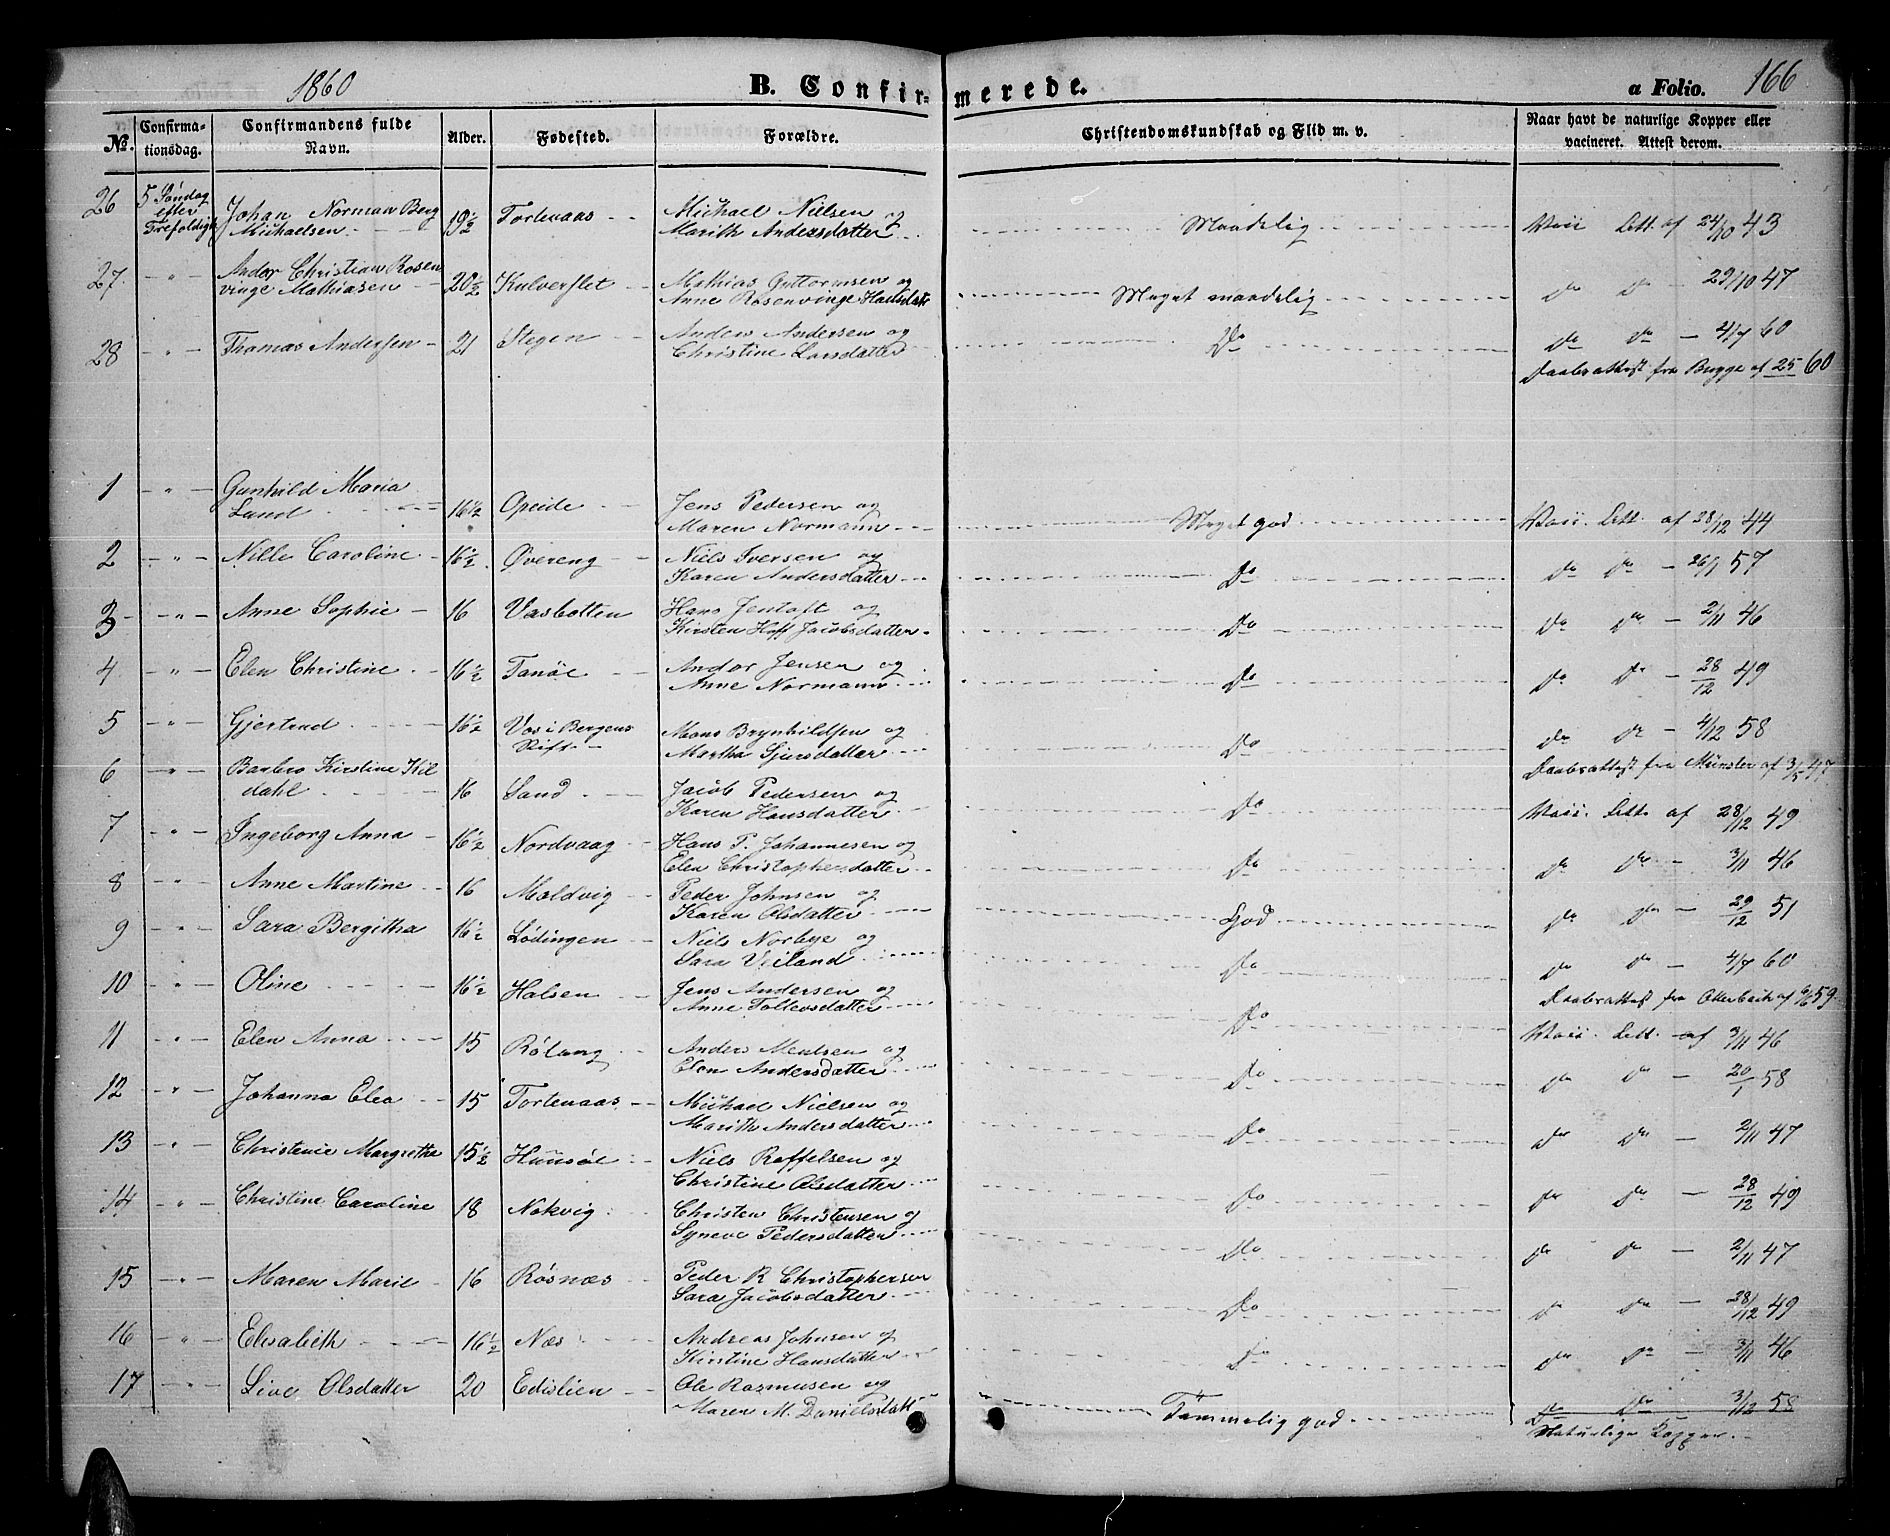 1860
B. Confirmerede.
a Folio. 166
No.
Confirmationsdag.
Confirmandens fulde Navn.
Alder.
Fødested.
Forældre.
Christendomskundskab og Flid m. v.
Naar havt de naturlige Kopper eller
vacineret. Attest derom.
26 5 Søndag efter Trefoldigh Johan Norman Berg Michaelsen 19½ Tortenaas Michael Nielsen og Marith Andersdatter Maadelig Vacc. Att. af 24/10 43
27 - " - Andor Christian Rosenvinge Mathiasen 20½ Kulverflet Mathias Guttormsen og Anne Rosenvinge Hansdatt Meget maadelig Do Do - 29/10 47
28 - " - Thomas Andersen 21 Stegen Anders Andersen og Christine Larsdatter Do Do Do - 4/7 60
Daabsattest fra Bugge af 25 60
1 - " - Gunhild Maria Lund 16½ Opeide Jens Pedersen og Maren Normann Meget god Vacc. Att. af 28/12 44
2 - " - Nille Caroline 16½ Øvereng Niels Iversen og Karen Andersdatter Do Do Do - 26/1 57
3 - " - Anne Sophie 16 Vasbotten Hans Jentoft og Kirsten Hoff Jacobsdatter Do Do Do - 2/11 46
4 - " - Elen Christine 16½ Tanøe Andor Jensen og Anne Normann Do Do Do - 28/12 49
5 - " - Gjertrud 16½ Vos i Bergens Stift Mons Brynhildsen og Martha Sjursdatter Do Do Do - 4/12 58
Daabsattest fra Münster af 3/5 47
6 - " - Barbro Kirstine Kildahl 16 Sand Jacob Pedersen og Karen Hansdatter Do Vacc. Att. af 28/12 49
7 - " - Ingeborg Anna 16½ Nordvaag Hans P. Johannesen og Elen Christophersdatter Do Do Do - 3/11 46
8 - " - Anne Martine 16 Moldvig Peder Johnsen og Karen Olsdatter God Do Do - 29/12 51
9 - " - Sara Bergitha 16½ Lødingen Niels Norbye og Sara Veiland Do Do Do - 4/7 60
Daabsattest fra Otterbech af 6/6 59.
10 - " - Oline 16½ Halsen Jens Andersen og Anne Tollevsdatter Do Vacc. Att. af 3/11 46
11 - " - Elen Anna 15 Røtang Anders Mentsen og Elen Andersdatter Do Do Do - 20/1 58
12 - " - Johanna Elea 15 Tortenaas Michael Nielsen og Marith Andersdatter Do Do Do - 2/11 47
13 - " - Christence Margretha 15½ Huusøe Niels Roffelsen og Christine Olsdatter Do Do Do - 28/12 49
14 - " - Christine Caroline 18 Nokvig Christen Christensen og Syneve Pedersdatter Do Do Do - 2/11 47
15 - " - Maren Marie 16 Røsnæs Peder R Christophersen Sara Jacobsdatter Do Do Do - 28/12 49
16 - " - Elisabeth 16½ Næs Andreas Johnsen og Kirstine Hansdatter Do Do Do - 3/11 46
17 - " - Live Olsdatter 20 Edislien Ole Rasmusen og Maren M. Danielsdatt Temmelig god Do Do 3/12 58
Naturlige Kopper.